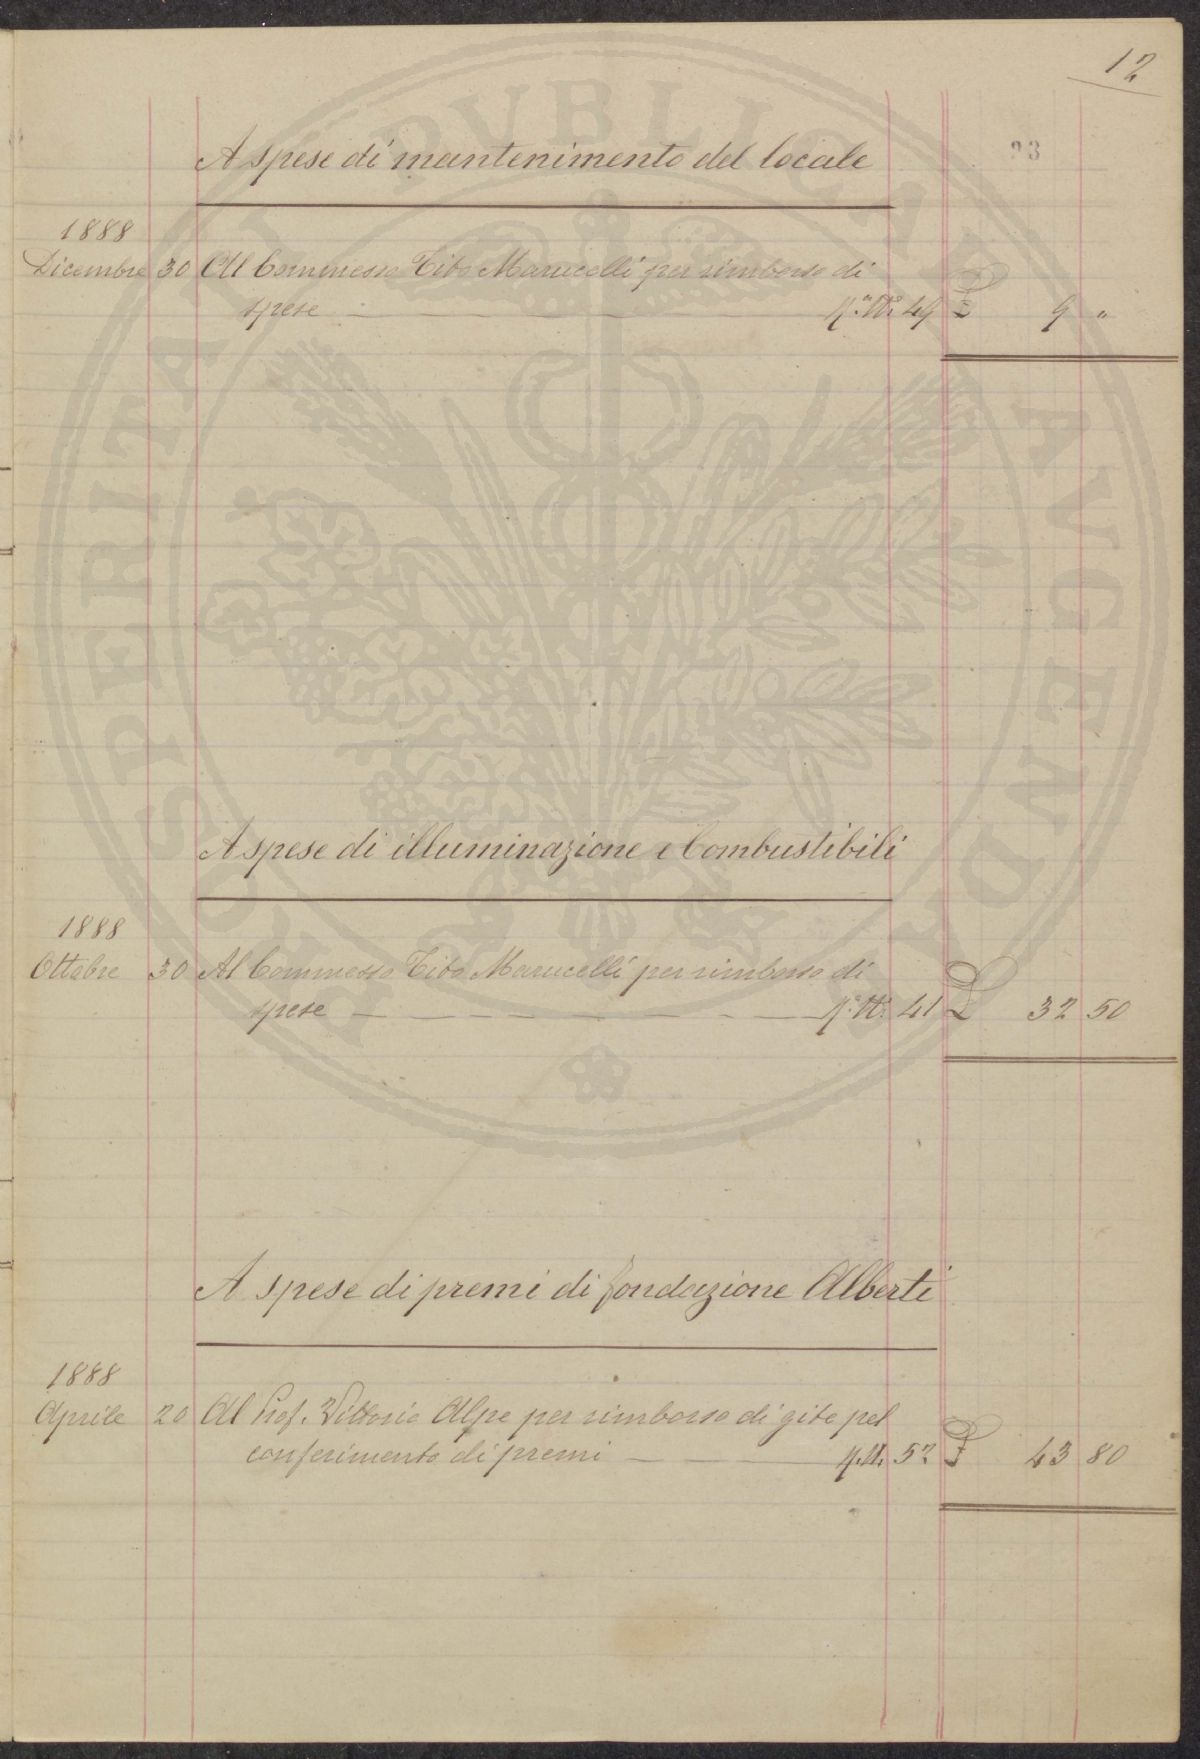 12
23
A spese di mantenimento del locale
1888
Dicembre 30 Al Commesso Tito Marucelli per rimborso di
spese p.° N.° 49 £ 9 "
A spese di illuminazione e Combustibili
1888
Ottobre 30 Al Commesso Tito Marucelli per rimborso di
spese p.° N.° 41 £ 32 50
A spese di premi di fondazione Alberti
1888
Aprile 20 Al Prof. Vittorio Alpe per rimborso di gite pel
conferimento di premi p. N. 52 £ 43 80
PROSPERITATI PVBLICAE AVGENDAE